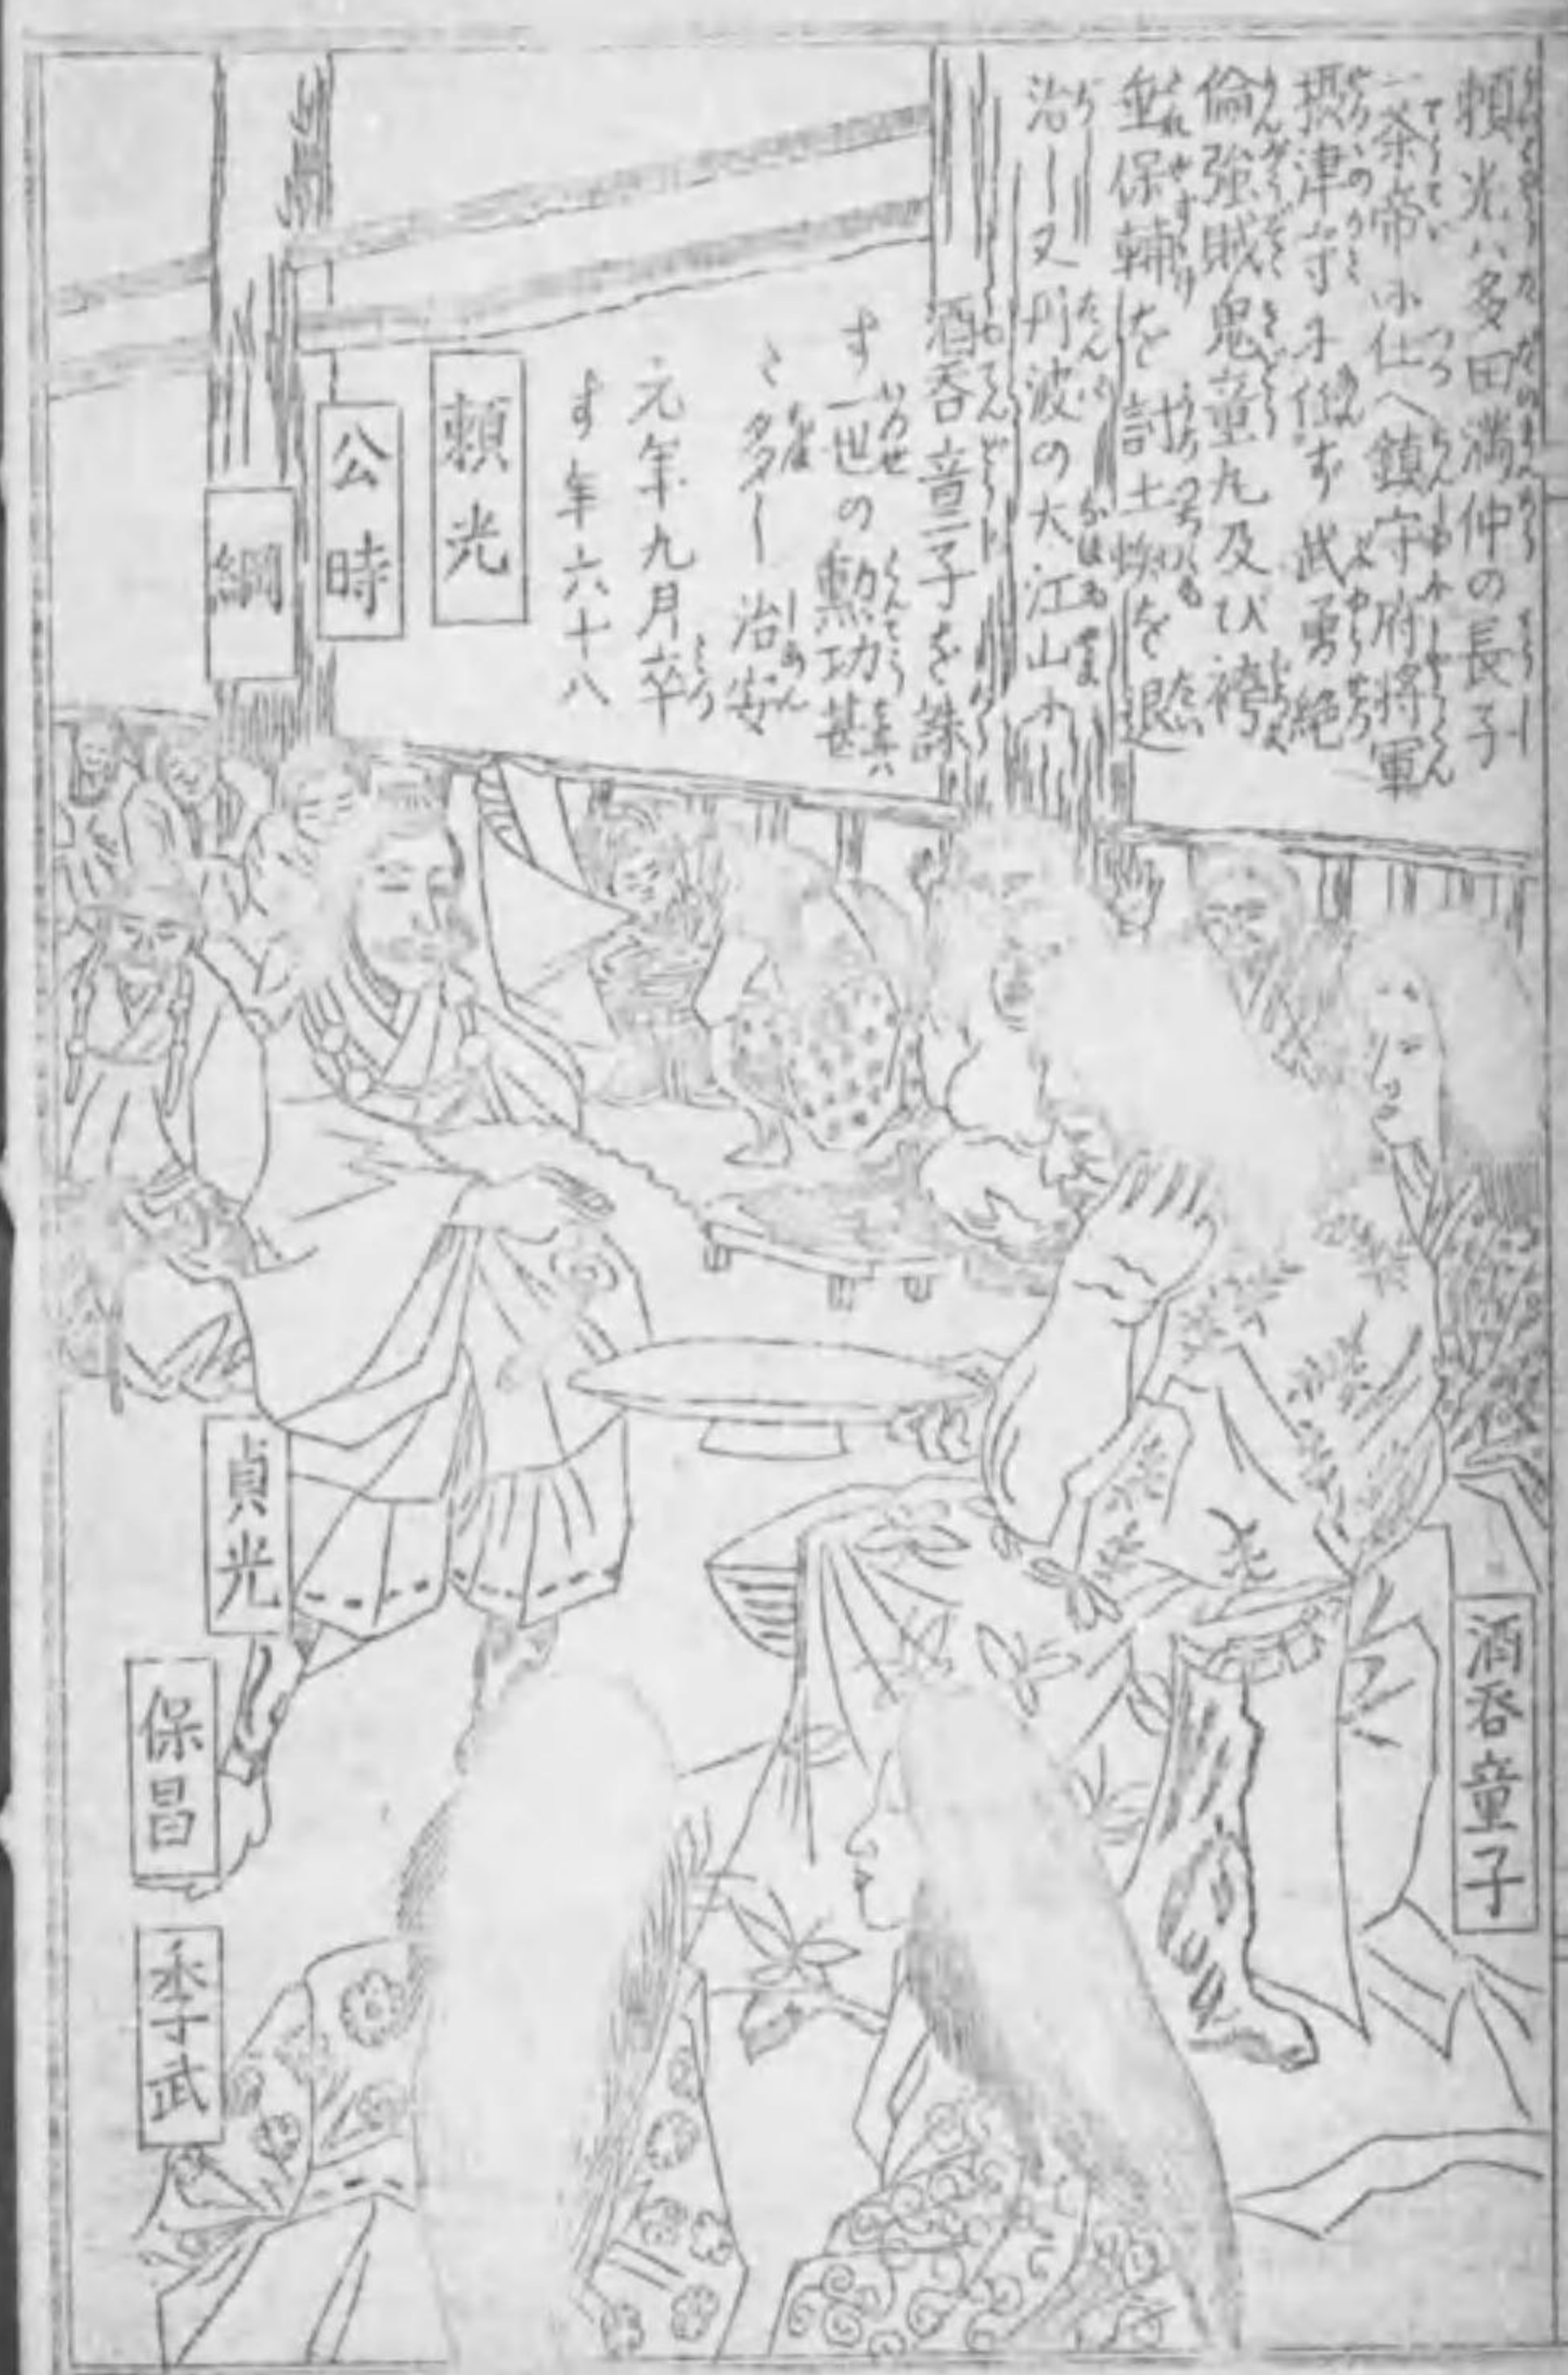 頼光ハ多田満仲の長子
一条帝に仕へ鎮守府将軍
摂津守に任ず武勇絶
倫強賊鬼童丸及び袴
垂保輔を討土蛛を退
治し又丹波の大江山に
酒呑童子を誅
す一世の勲功甚
だ多し治安
元年九月卒
す年六十八
頼光
公時
綱
貞光
保昌
季武
酒呑童子